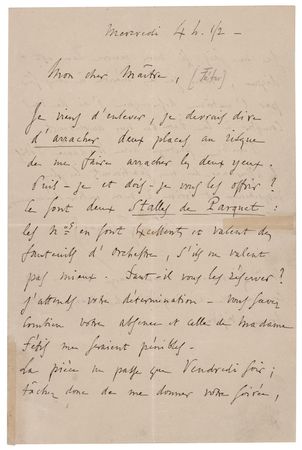 Mercredi 4 h. 1/2 –
Mon cher Maître, [Fétis]
Je viens d'enlever, je devrais dire
d'arracher deux places au risque
de me faire arracher les deux yeux.
Puis-je et dois-je vous les offrir ?
Ce sont deux Stalles de Parquet :
les nos en sont excellents et valent des
fauteuils d'Orchestre, s'ils ne valent
pas mieux. Faut-il vous les réserver ?
J'attends votre détermination – Vous savez
combien votre absence et celle de Madame
Fétis me seraient pénibles –
La pièce ne passe que Vendredi soir ;
tâchez donc de me donner votre soirée,